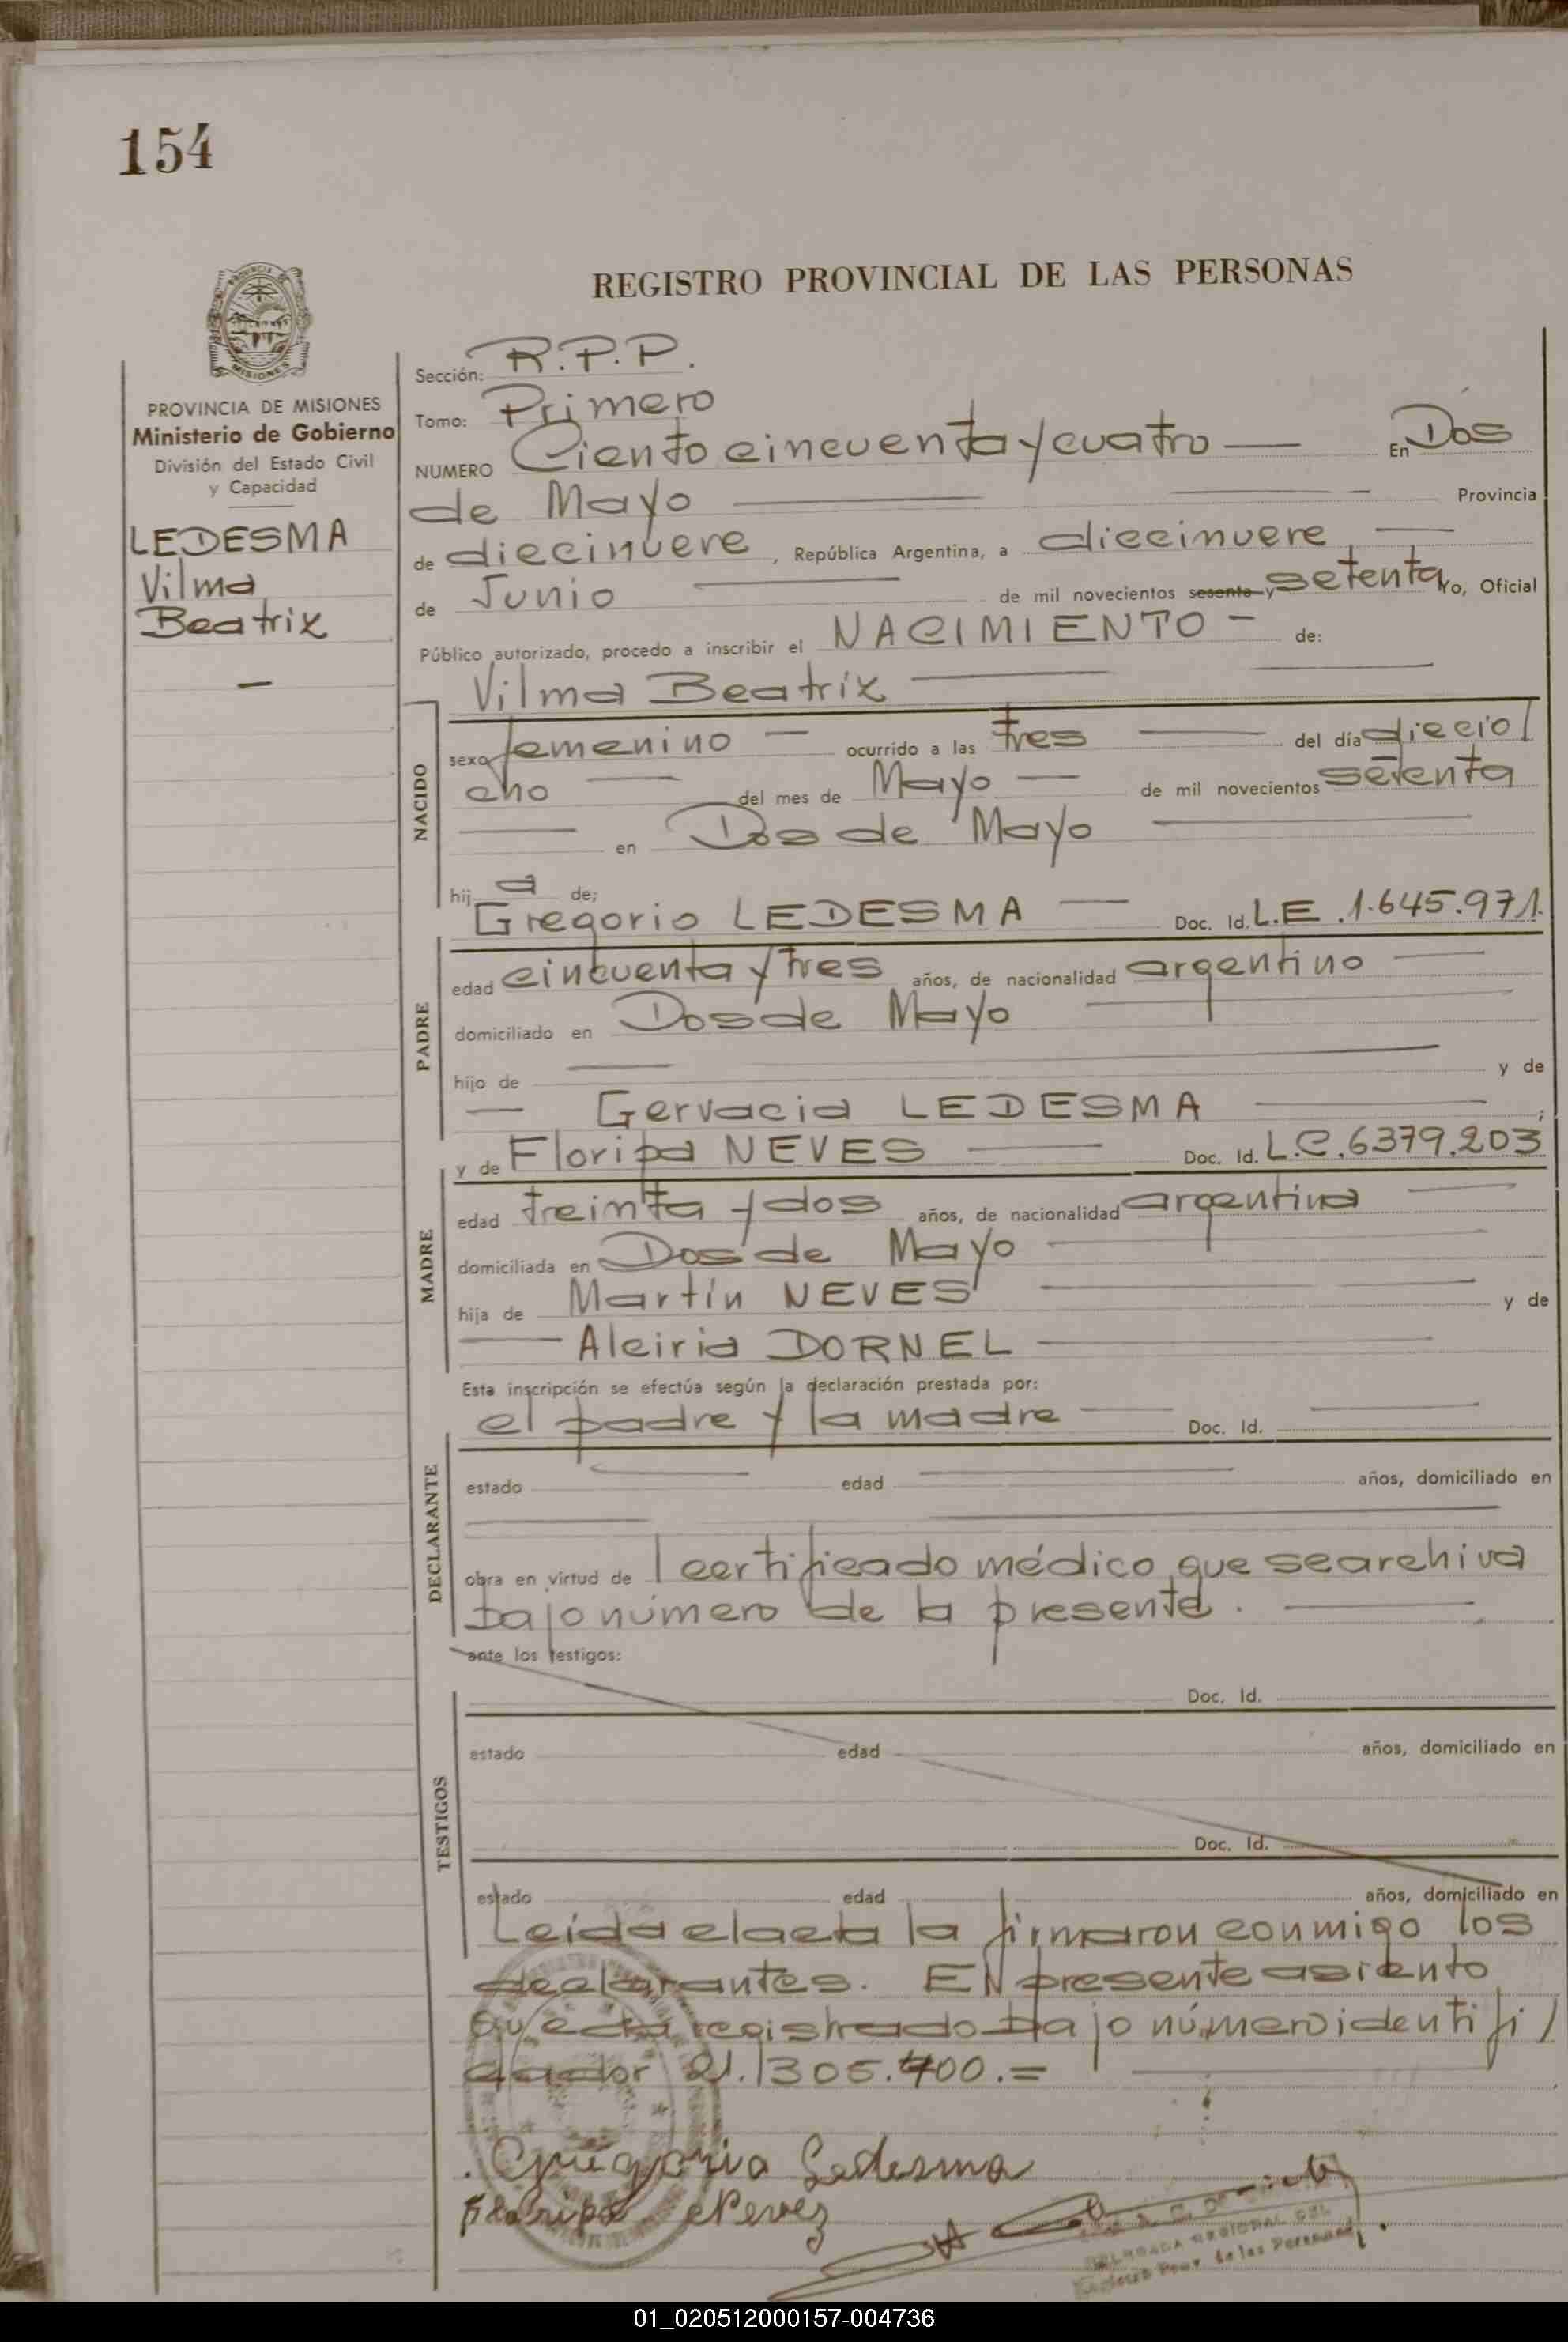 154
REGISTRO PROVINCIAL DE LAS PERSONAS
PROVINCIA DE MISIONES
Ministerio de Gobierno
División del Estado Civil
y Capacidad
LEDESMA
Vilma
Beatrix
—
Sección: R.P.P.
Tomo: Primero
NUMERO Ciento cincuenta y cuatro — En Dos
de Mayo — — Provincia
de diecinueve, República Argentina, a diecinueve —
de Junio — de mil novecientos sesenta y setenta Yo, Oficial
Público autorizado, procedo a inscribir el NACIMIENTO - de:
Vilma Beatrix —
NACIDO
sexo femenino — ocurrido a las tres — del día diecio/
cho — del mes de Mayo — de mil novecientos setenta
— en Dos de Mayo —
hij a de;
Gregorio LEDESMA — Doc. Id. L.E. 1.645.971.
PADRE
edad cincuenta y tres años, de nacionalidad argentino —
domiciliado en Dos de Mayo —
hijo de — y de
— Gervacia LEDESMA — ;
y de Floripa NEVES — Doc. Id. L.C. 6379.203
MADRE
edad treinta y dos años, de nacionalidad argentina —
domiciliada en Dos de Mayo —
hija de Martín NEVES — y de
— Alciria DORNEL —
Esta inscripción se efectúa según la declaración prestada por:
el padre y la madre — Doc. Id. —
DECLARANTE
estado — edad — años, domiciliado en
—
obra en virtud de l certificado médico que se archiva
bajo número de la presente. —
ante los testigos:
Doc. Id.
TESTIGOS
estado edad años, domiciliado en
Doc. Id.
estado edad años, domiciliado en
Leída el acta la firmaron conmigo los
declarantes. EN presente asiento
queda registrado bajo número identifi/
cador 21.305.700.= —
Gregorio Ledesma
Floripa Nevez
DELEGADA REGIONAL DEL
Registro Prov. de las Personas
01_020512000157-004736